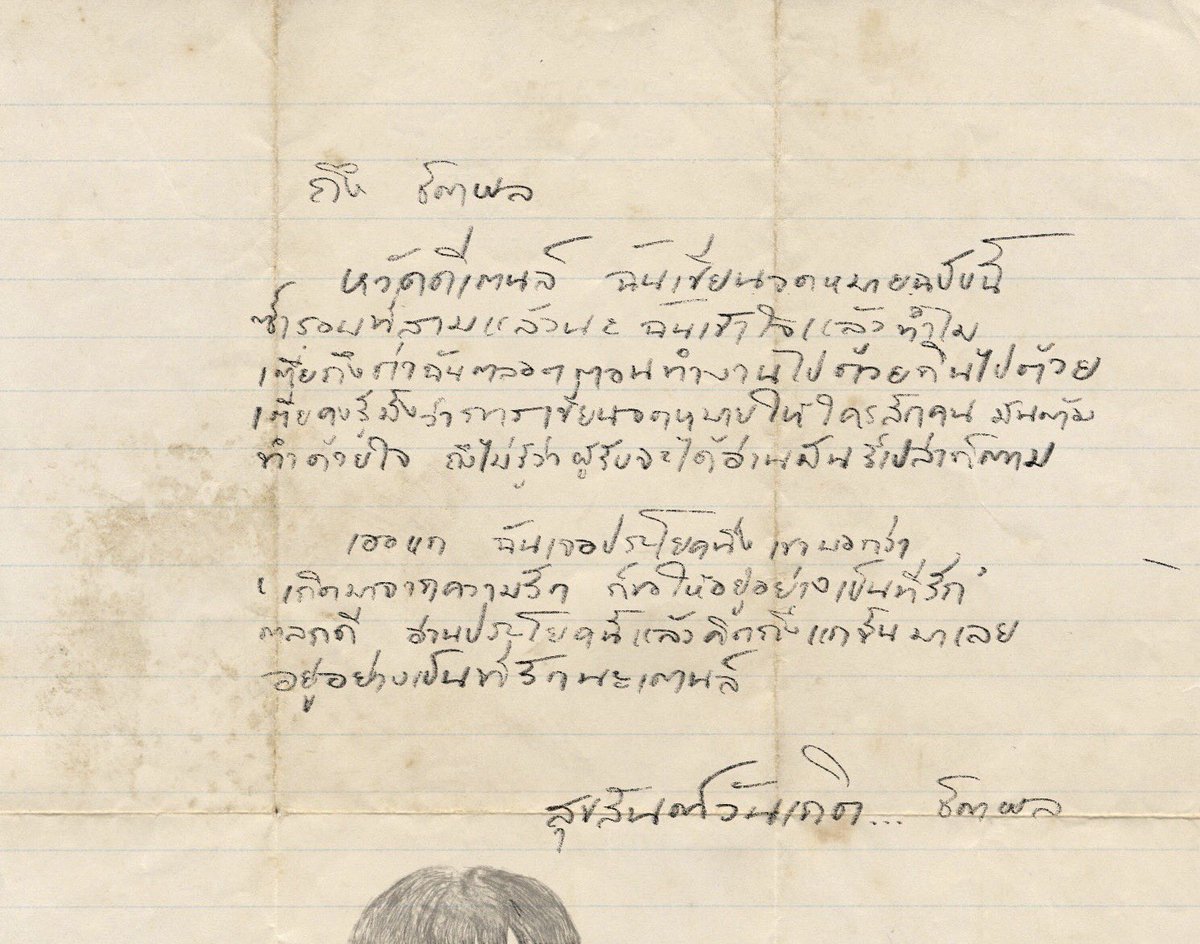 ถึง โชตาผล
หวัดดีเตนล์ ฉันเขียนจดหมายฉบับนี้
ซ้ำรอบที่สามแล้วนะ ฉันเข้าใจแล้วทำไม
เตี่ยถึงด่าฉันตลอดตอนทำงานไปด้วยกินไปด้วย
เตี่ยคงรู้มั้งว่าการเขียนจดหมายให้ใครสักคน มันต้อง
ทำด้วยใจ ถึงไม่รู้ว่าผู้รับจะได้อ่านมันรึเปล่าก็ตาม
เออแก ฉันเจอประโยคนึง เขาบอกว่า
'เกิดมาจากความรัก ก็ขอให้อยู่อย่างเป็นที่รัก'
ตลกดี อ่านประโยคนี้แล้วคิดถึงแกขึ้นมาเลย
อยู่อย่างเป็นที่รักนะเตนล์
สุขสันต์วันเกิด...